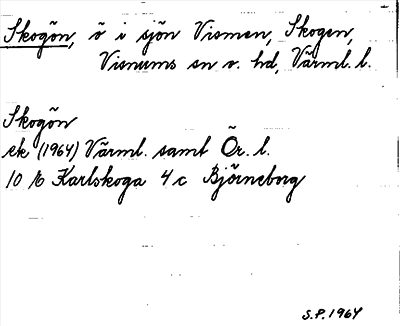 Skogön, ö i sjön Vismen, Skogen,
Visnums sn o. hd, Värml. l.
Skogön
ek (1964) Värml. samt Ör. l.
10 16 Karlskoga 4 c Björneborg
S.P. 1964